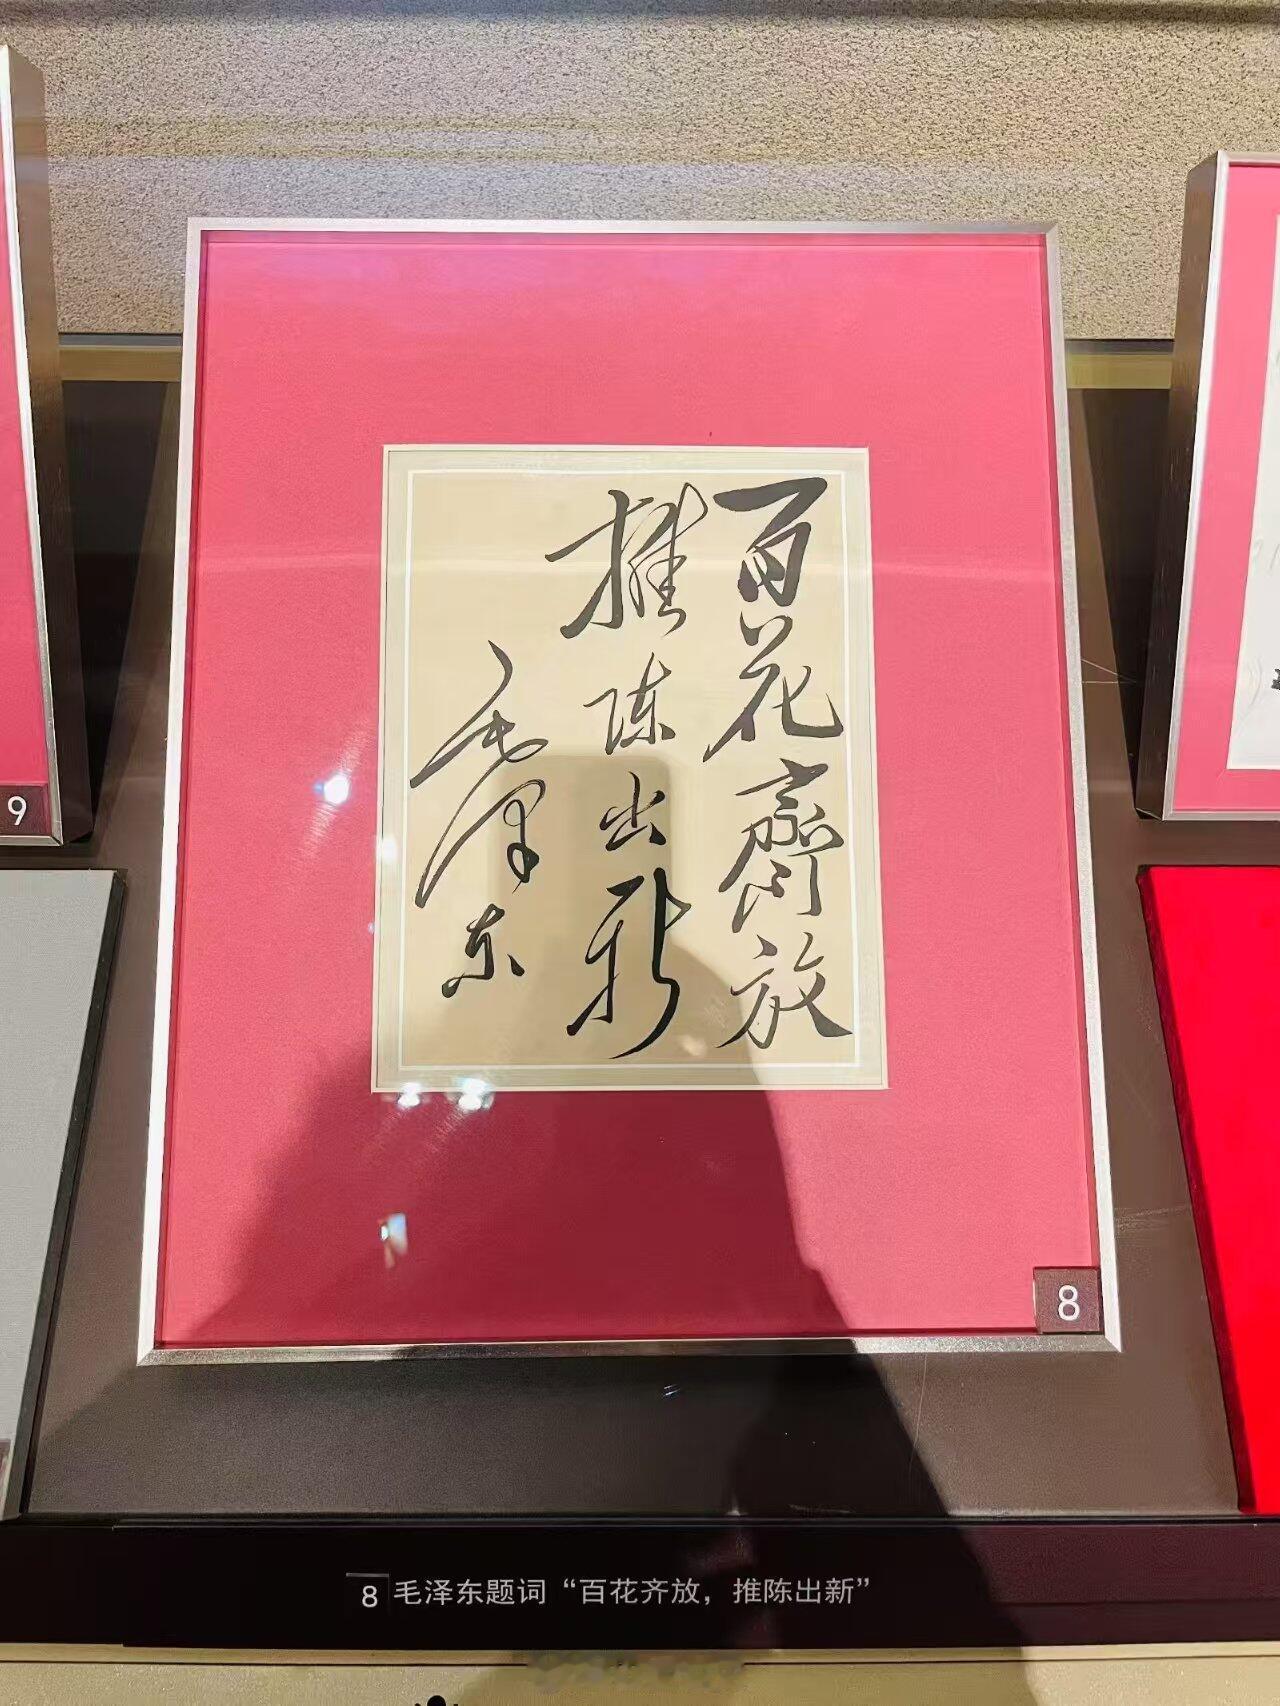 百花齊放
推陈出新
毛泽东
9
8
8 毛泽东题词“百花齐放，推陈出新”